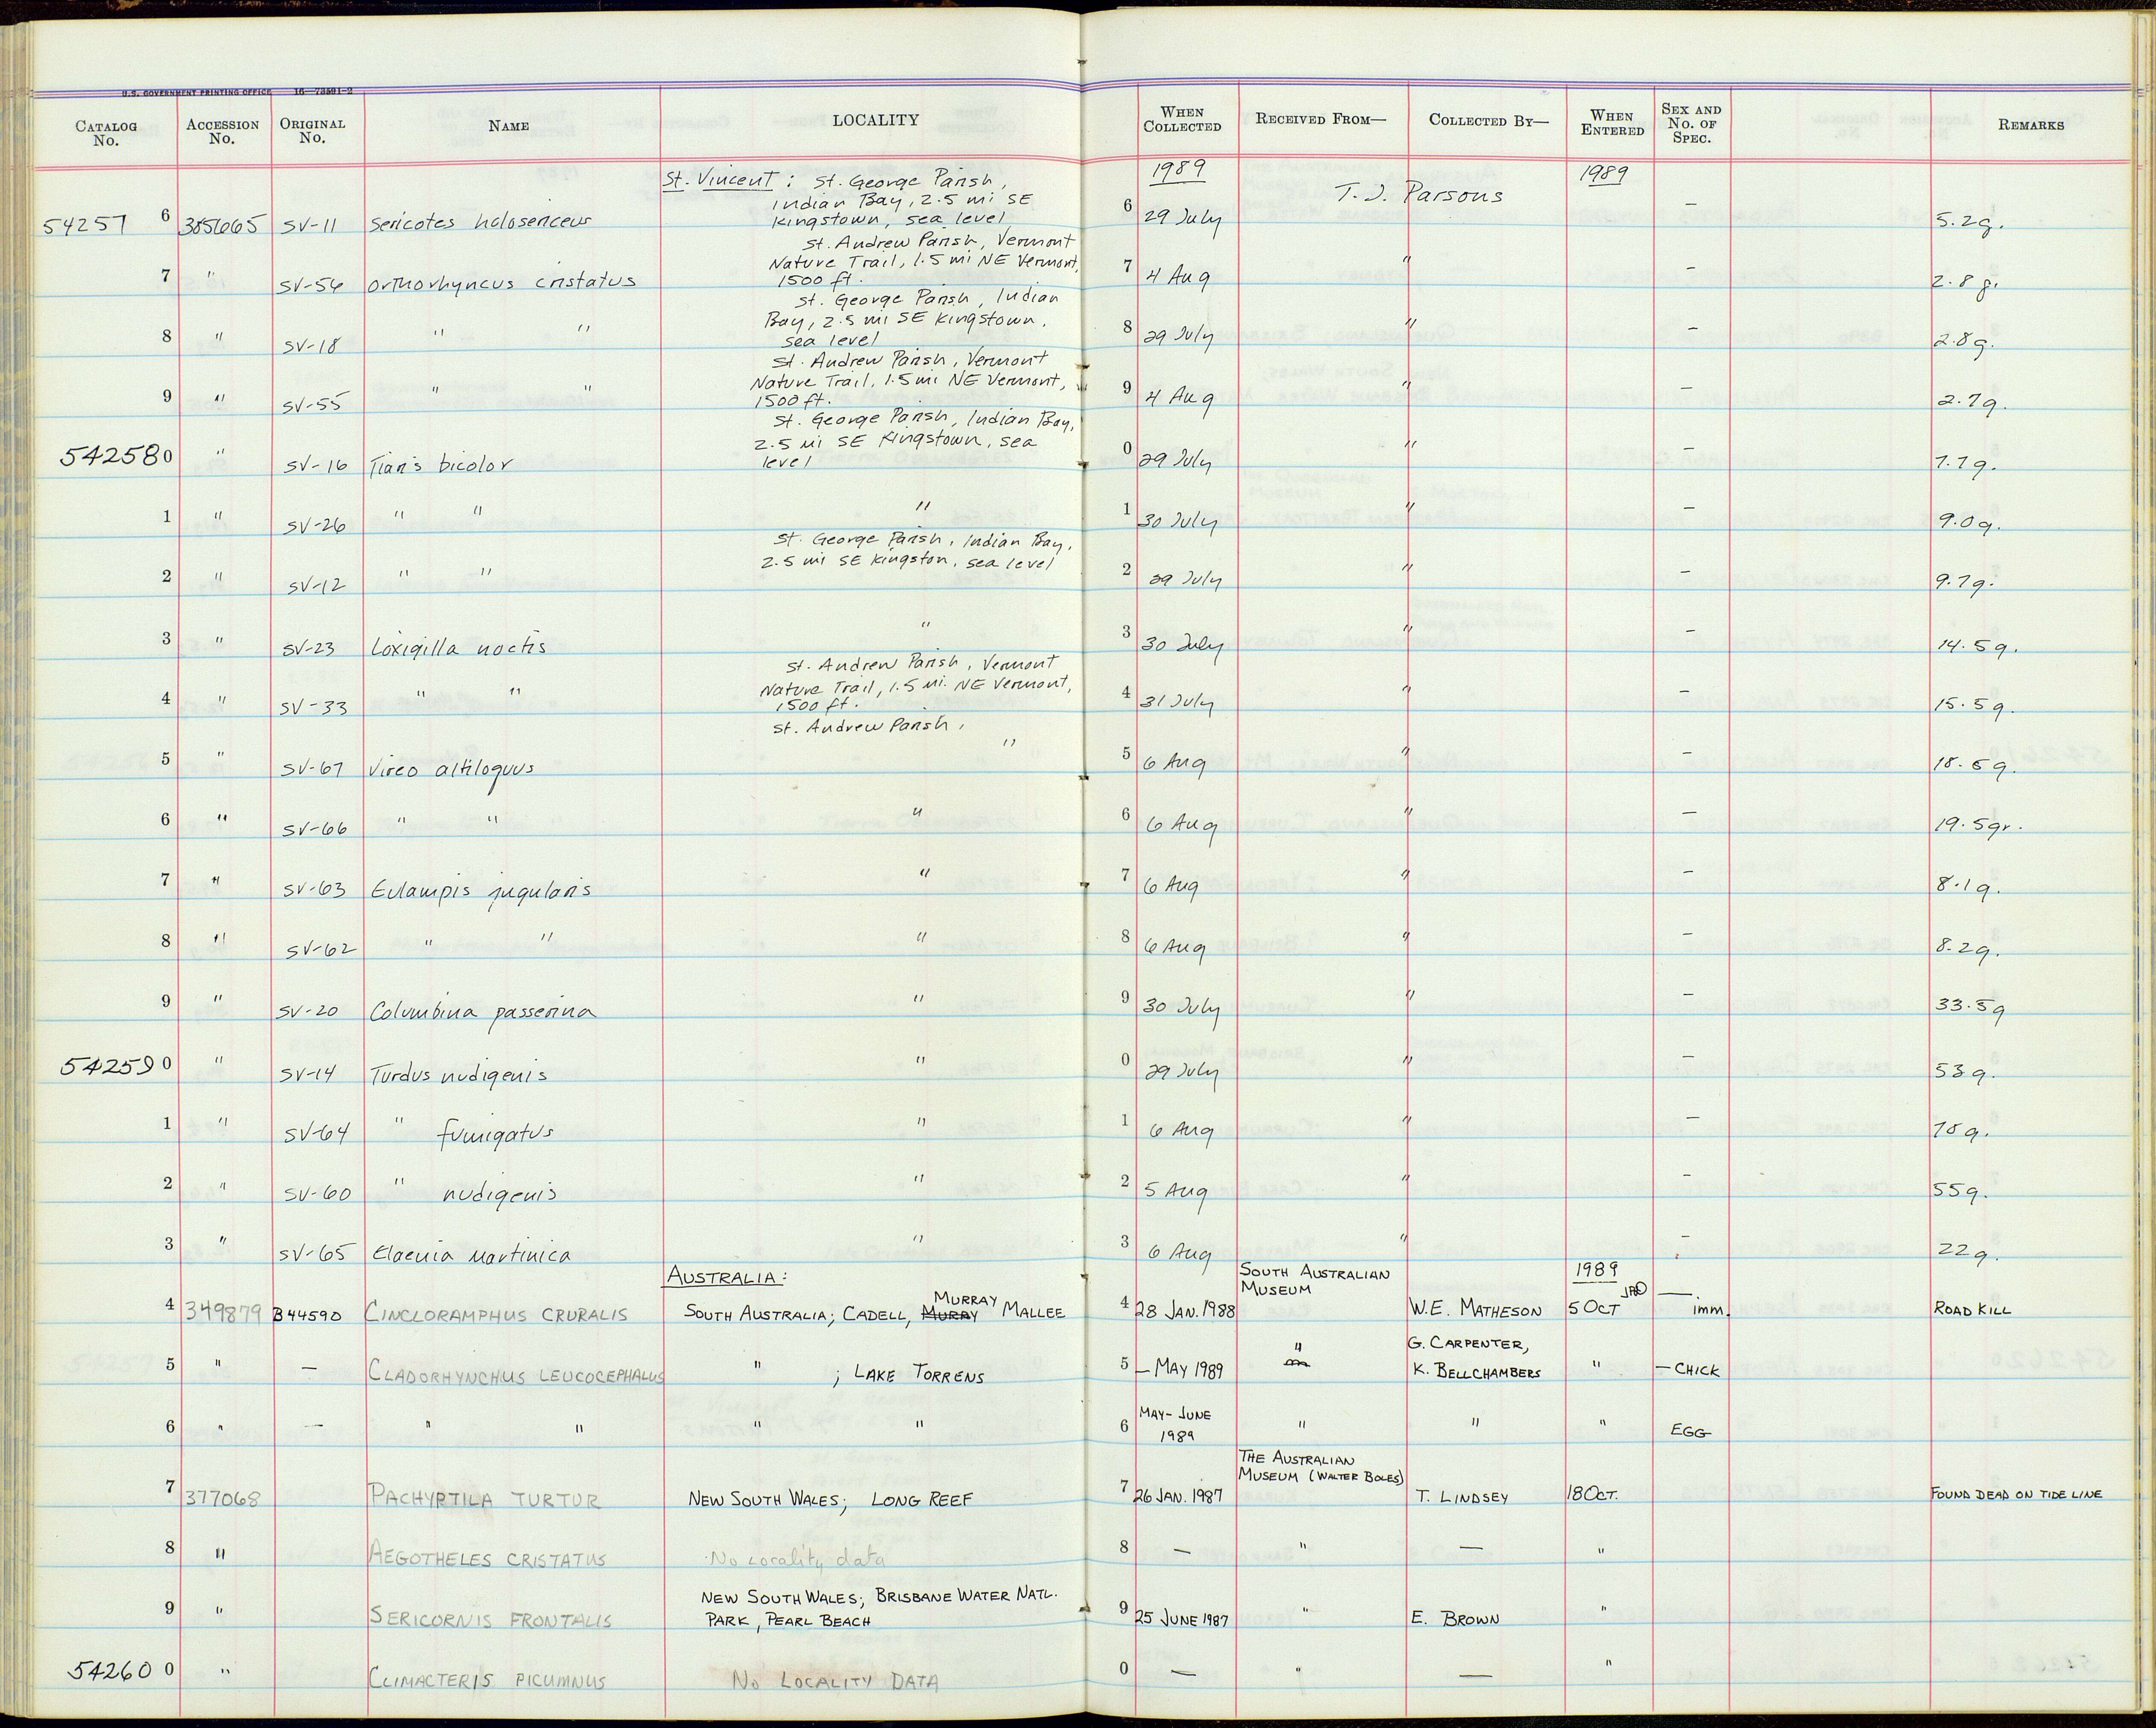 U.S. GOVERNMENT PRINTING OFFICE 16—73591-2
CATALOG No. ACCESSION No. ORIGINAL No. NAME LOCALITY WHEN COLLECTED RECEIVED FROM— COLLECTED BY— WHEN ENTERED SEX AND No. OF SPEC. REMARKS
St. Vincent : St. George Parish, 1989 1989
Indian Bay, 2.5 mi SE T. J. Parsons
54257 6 385665 SV-11 Sericotes holosericeus Kingstown, sea level 6 29 July — 5.2g.
St. Andrew Parish, Vermont
Nature Trail, 1.5 mi NE Vermont,
7 " SV-54 Orthorhyncus cristatus 1500 ft. 7 4 Aug " — 2.8 g.
St. George Parish, Indian
Bay, 2.5 mi SE Kingstown,
8 " SV-18 " " sea level 8 29 July " — 2.8g.
St. Andrew Parish, Vermont
Nature Trail, 1.5 mi NE Vermont,
9 " SV-55 " " 1500 ft. 9 4 Aug " — 2.7g.
St. George Parish, Indian Bay,
2.5 mi SE Kingstown, sea
54258 0 " SV-16 Tiaris bicolor level 0 29 July " — 7.7g.
1 " SV-26 " " " 1 30 July " — 9.0g.
St. George Parish, Indian Bay,
2.5 mi SE Kingston, sea level
2 " SV-12 " " 2 29 July " — 9.7g.
3 " SV-23 Loxigilla noctis " 3 30 July " — 14.5g.
St. Andrew Parish, Vermont
Nature Trail, 1.5 mi. NE Vermont,
4 " SV-33 " " 1500 ft. 4 31 July " — 15.5g.
St. Andrew Parish,
5 " SV-67 Vireo altiloquus " 5 6 Aug " — 18.5g.
6 " SV-66 " " " 6 6 Aug " — 19.5gr.
7 " SV-63 Eulampis jugularis " 7 6 Aug " — 8.1g.
8 " SV-62 " " " 8 6 Aug " — 8.2g.
9 " SV-20 Columbina passerina " 9 30 July " — 33.5g
54259 0 " SV-14 Turdus nudigenis " 0 29 July " — 53g.
1 " SV-64 " fumigatus " 1 6 Aug " — 78g.
2 " SV-60 " nudigenis " 2 5 Aug " — 55g.
3 " SV-65 Elaenia martinica " 3 6 Aug " — 22g.
AUSTRALIA: SOUTH AUSTRALIAN 1989
MURRAY MUSEUM
4 349879 B44590 CINCLORAMPHUS CRURALIS SOUTH AUSTRALIA; CADELL, MURRY MALLEE 4 28 JAN. 1988 W.E. MATHESON 5 OCT — imm. ROAD KILL
G. CARPENTER,
5 " — CLADORHYNCHUS LEUCOCEPHALUS " ; LAKE TORRENS 5 — MAY 1989 " K. BELLCHAMBERS " — CHICK
MAY-JUNE
6 " — " " " " 6 1989 " " " EGG
THE AUSTRALIAN
MUSEUM (WALTER BOLES)
7 377068 PACHYPTILA TURTUR NEW SOUTH WALES; LONG REEF 7 26 JAN. 1987 T. LINDSEY 18 OCT. FOUND DEAD ON TIDE LINE
8 " AEGOTHELES CRISTATUS No Locality data 8 — " — "
NEW SOUTH WALES; BRISBANE WATER NATL.
9 " SERICORNIS FRONTALIS PARK, PEARL BEACH 9 25 JUNE 1987 " E. BROWN "
54260 0 " CLIMACTERIS PICUMNUS NO LOCALITY DATA 0 — " — "